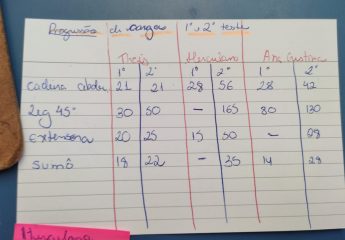 Progressão de cargas 1° e 2° teste
Thais Herculano Ana Cristina
1° 2° 1° 2° 1° 2°
cadeira abdu 21 21 28 56 28 42
Leg 45° 30 50 - 165 80 130
extensora 20 25 15 50 - 28
sumô 18 22 - 35 14 28
Herculano